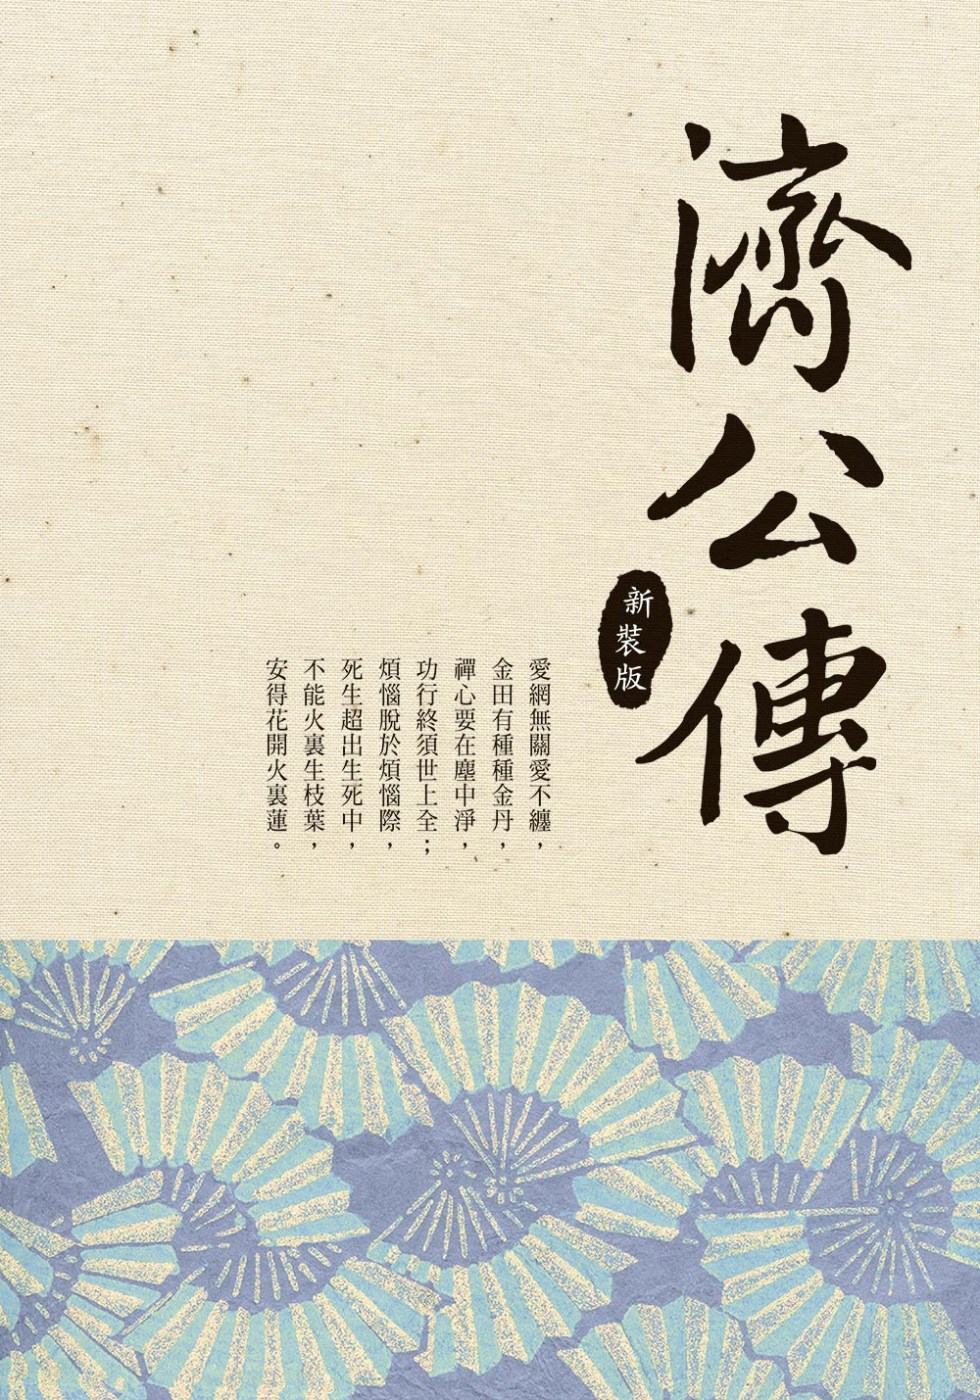 濟公傳
新裝版
愛網無關愛不纏，
金田有種種金丹，
禪心要在塵中淨，
功行終須世上全；
煩惱脫於煩惱際，
死生超出生死中，
不能火裏生枝葉，
安得花開火裏蓮。